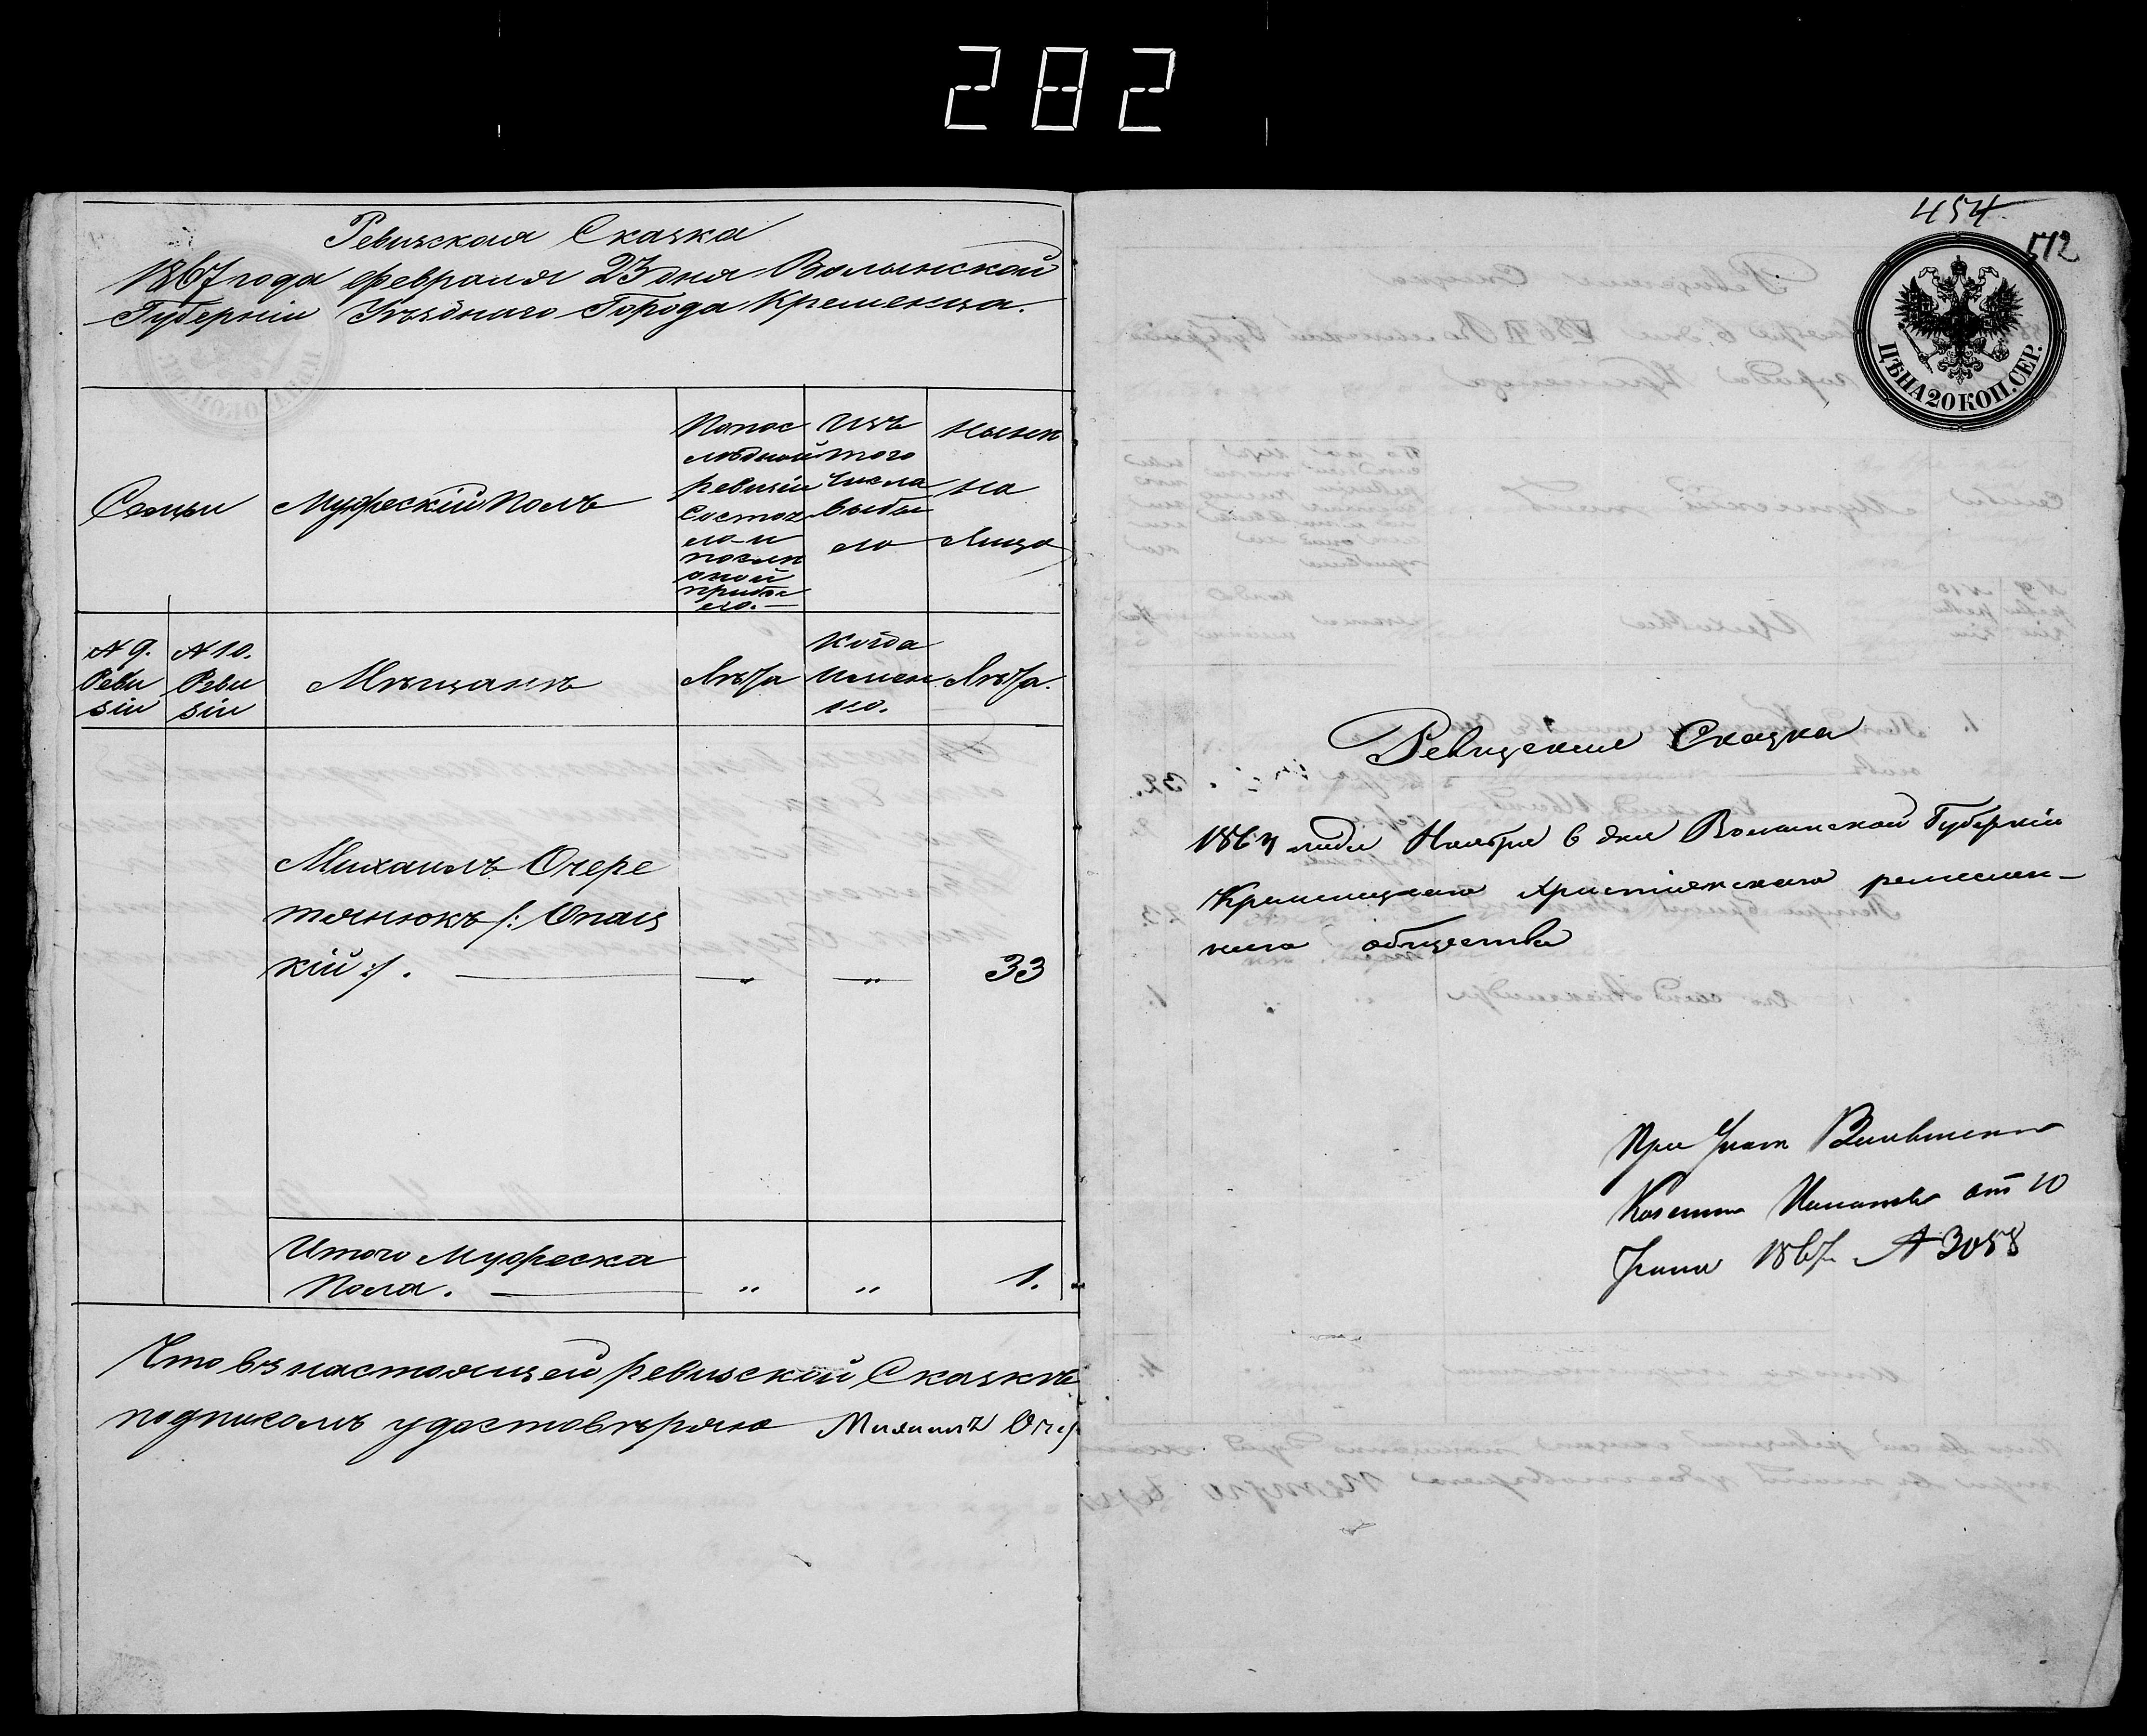 282
Ревизская Сказка
1867 года февраля 23 дня Волынской
Губерніи Уѣзднаго Города Кременца.
Семьи
Мужескій Полъ
Попос
лѣдной
ревизіи
Состоя
ло и
послѣ
оной
прибы
ло.—
Изъ
того
числа
выбы
ло
нынѣ
на
Лицо
№ 9.
Реви
зіи
№ 10.
Реви
зіи
Мѣщанъ
Лѣта
Когда
имен
но.
Лѣта.
Михаилъ Очере
тянюкъ /: Опац
кій :/. — „ „ 33
Итого Мужеска
Пола. — „ „ 1.
Что въ настоящей ревизской Сказкѣ
подписомъ удостовѣряю Михаилъ Очер
454
512
ЦѢНА 20 КОП. СЕР.
Ревизские Сказка
1867 года Ноября 6 дня Волынской Губерніи
Кременецкаго Христіянскаго ремеслен-
наго общества
При
Казенной Палаты от 10
1867 № 3058